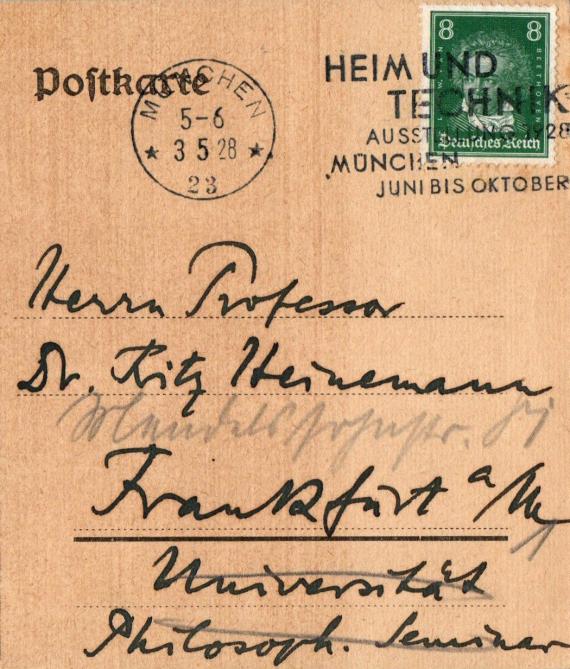 Postkarte
MÜNCHEN
5-6
★ 3 5 28 ★
23
HEIM UND
TECHNIK
AUSSTELLUNG 1928
MÜNCHEN
JUNI BIS OKTOBER
8 8
L. V. BEETHOVEN
Deutsches Reich
Herrn Professor
Dr. Fritz Heinemann
Mendelssohnstr.
Frankfurt a/M
Universität
Philosoph. Seminar